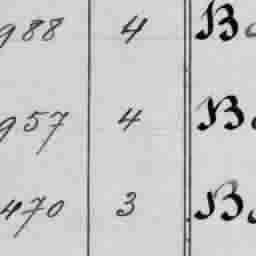 988 4 B
957 4 B
470 3 B